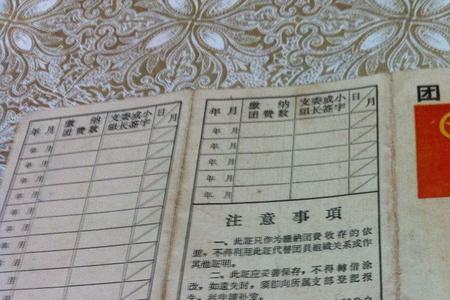 年 月
缴 纳
团 費 数
支委或小
組长签字
日
月
年 月
年 月
年 月
年 月
年 月
年 月
年 月
年 月
缴 纳
团 費 数
支委或小
組长签字
日
月
年 月
年 月
年 月
年 月
注意事項
一、此証只作为繳納团費收存的依
据，不得利用此証代替团員組織关系或作
其他証明。
二、此証应妥善保存，不得轉借涂
改，如遺失时，須即向所属支部登記报
团